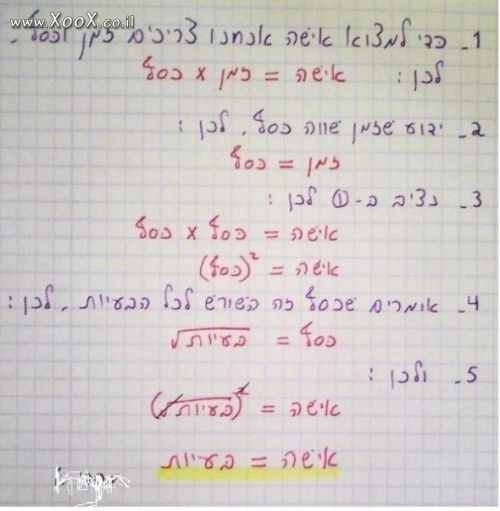 www.XooX.co.il
1- כדי למצוא אישה אנחנו צריכים זמן וכסף.
לכן: אישה = זמן x כסף
2- ידוע שזמן שווה כסף, לכן:
זמן = כסף
3- נציב ב-① לכן:
אישה = כסף x כסף
אישה = (כסף)²
4- אומרים שכסף זה השורש לכל הבעיות, לכן:
כסף = √בעיות
5- ולכן:
אישה = (√בעיות)²
אישה = בעיות